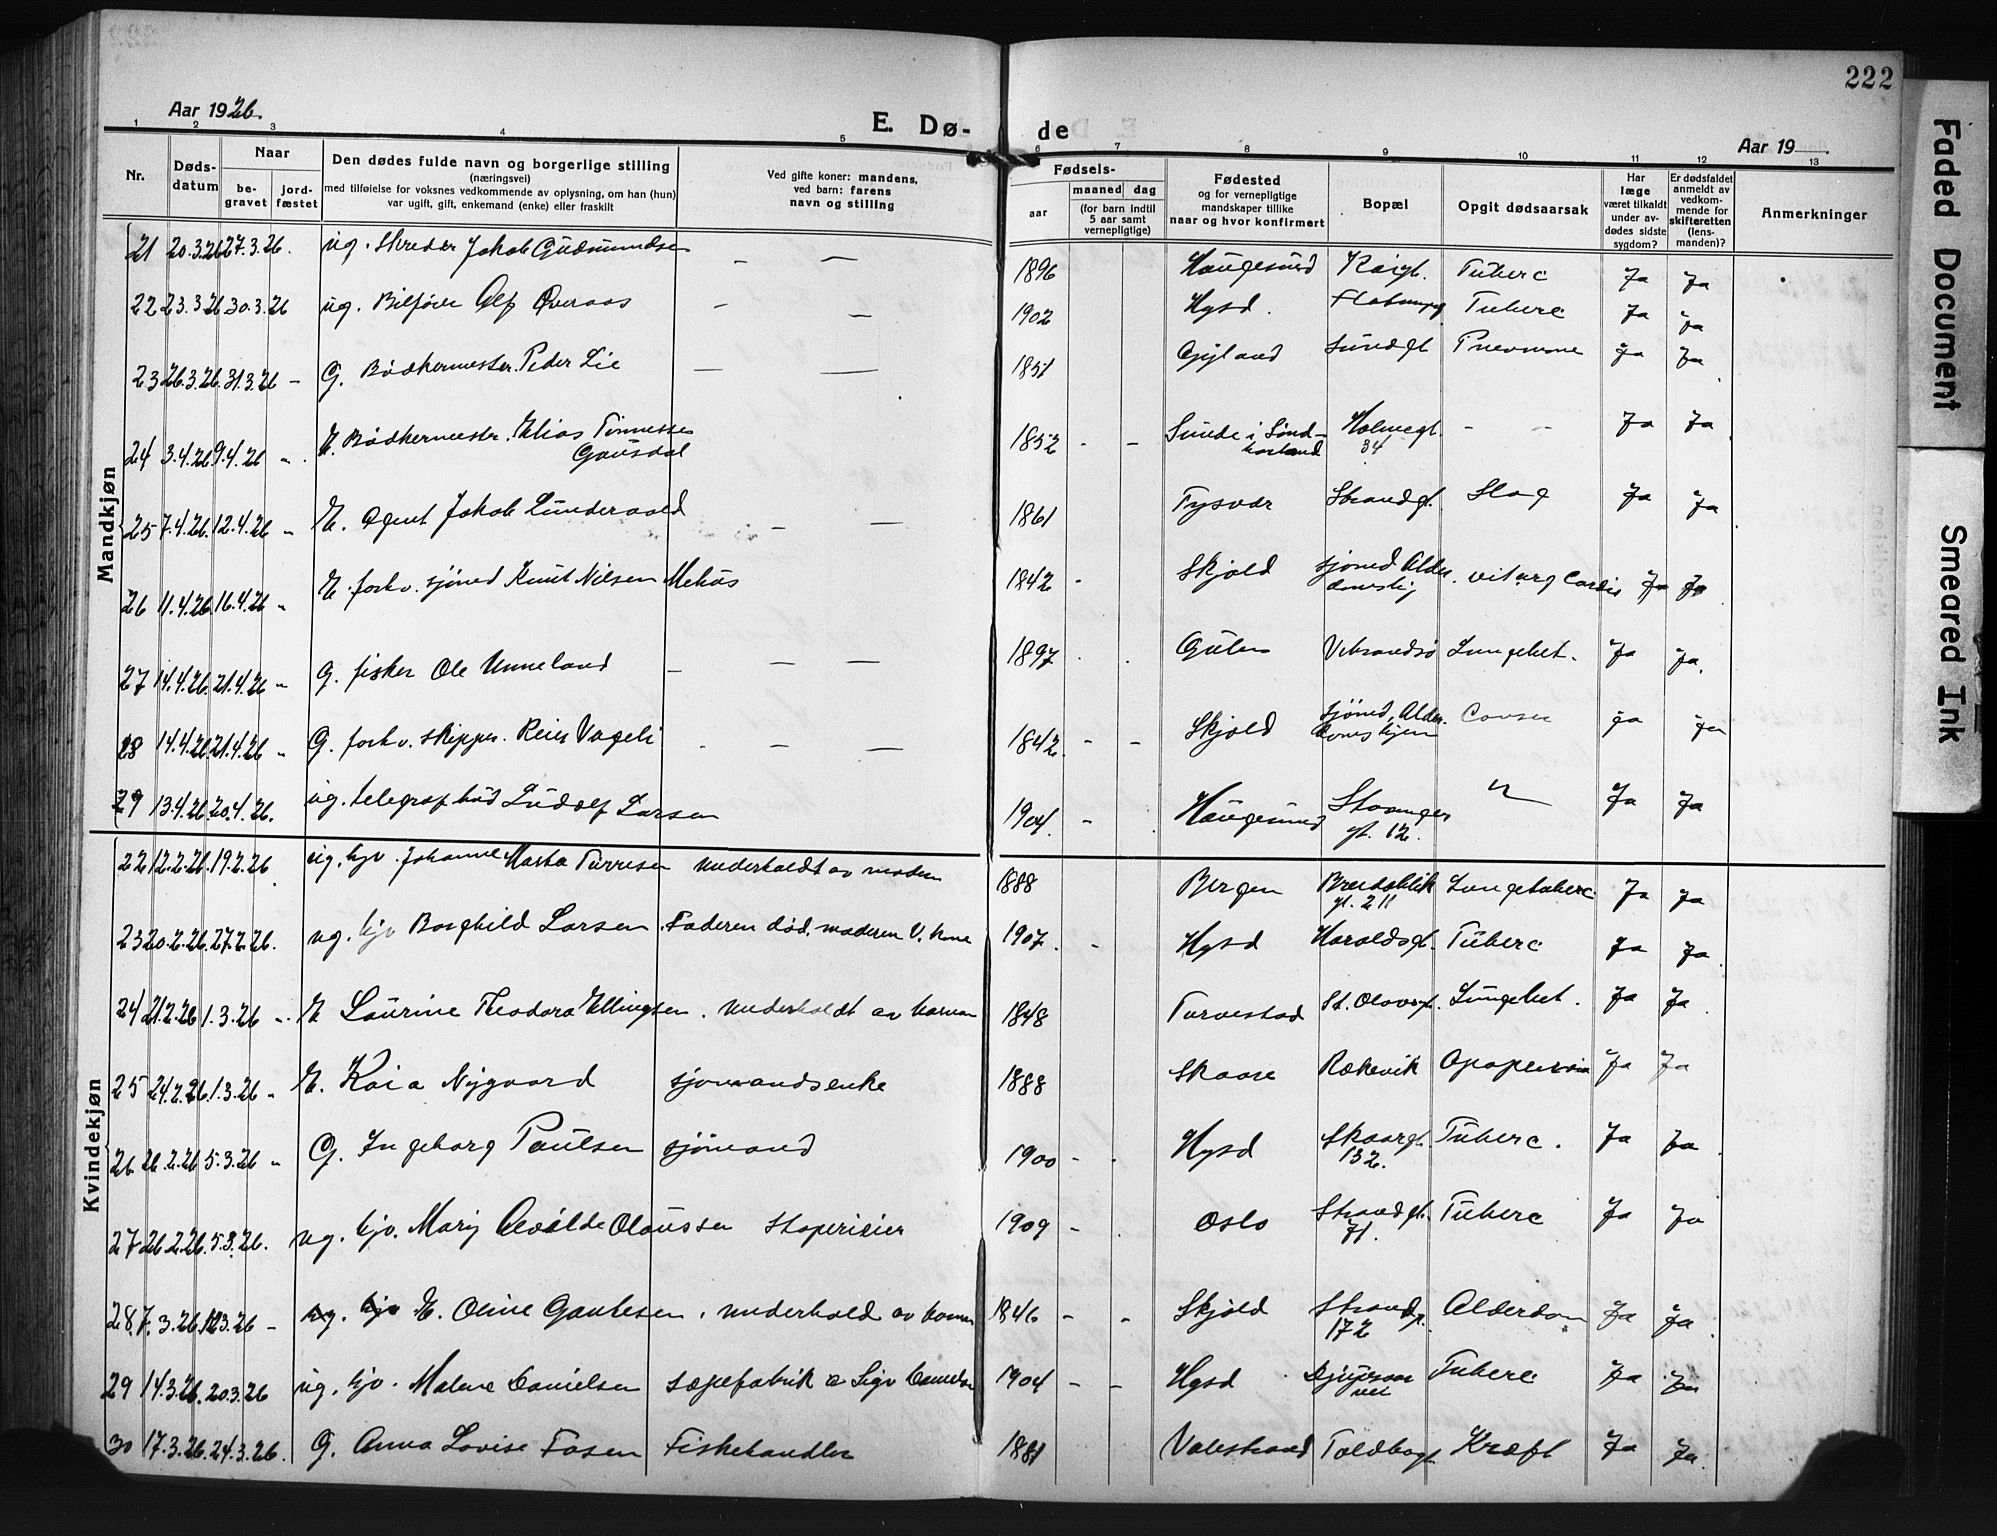 222
Aar 1926.
E. Dø-
de
Aar 19 .
Faded Document
Smeared Ink
1 2 3 4 5 6 7 8 9 10 11 12 13
Nr.
Døds-
datum
Naar
be-
gravet
jord-
fæstet
Den dødes fulde navn og borgerlige stilling
(næringsvei)
med tilføielse for voksnes vedkommende av oplysning, om han (hun)
var ugift, gift, enkemand (enke) eller fraskilt
Ved gifte koner: mandens,
ved barn: farens
navn og stilling
Fødsels-
aar
maaned
dag
(for barn indtil
5 aar samt
vernepligtige)
Fødested
og for vernepligtige
mandskaper tillike
naar og hvor konfirmert
Bopæl
Opgit dødsaarsak
Har
læge
været tilkaldt
under av-
dødes sidste
sygdom?
Er dødsfaldet
anmeldt av
vedkom-
mende for
skifteretten
(lens-
manden)?
Anmerkninger
Mandkjøn
21 20.3.26 27.3.26. ug. Skreder Jakob Gudmundsen — — 1896 Haugesund Tuberc Ja Ja
22 23.3.26 30.3.26 ug. Bilfører Alf Øveraas — — 1902 Hgsd. Tuberc Ja Ja
23 26.3.26. 31.3.26 — G. Bødkermester. Peder Lie — — 1851 Gyland Sundgt Ja Ja
24 3.4.26 9.4.26 „ . E. Bødkermester. Elias Tønnessen
Gausdal 1852 - - Sunde i Sønd-
horland Holmegt.
34 - - Ja Ja
25 7.4.26. 12.4.26 „ E. Agent Jakob Lundevold — — 1861 Tysvær Strandgt. Slag Ja Ja
26 11.4.26. 16.4.26 „ E. forhv. sjømd Knut Nilsen Mehus 1842 - Skjold sjømd Alder
domshj. vit org Cordis Ja Ja
27 14.4.26. 21.4.26 „ G. fisker Ole Unneland — — — 1897 Gulen Vibrandsø Lungebet. Ja Ja.
28 14.4.26. 21.4.26 „ G. forhv. skipper. Reier Vågeli - — — 1842. - - Skjold sjømd. Alder-
domshjem Cancer Ja Ja
29 13.4.26. 20.4.26. ug. telegrafbud Ludolf Larsen 1904. - Haugesund Stavanger
gt. 12. „ Ja Ja
Kvindekjøn
22 12.2.26. 19.2.26 ug. hjv. Johanne Marta Turresen Underholdt av moderen 1888 Bergen Breidablik
gt. 211 Lungetuberc. Ja Ja
23 20.2.26. 27.2.26. ug. hjv Borghild Larsen . Faderen død, moderen V. kone 1907. - Hgsd Haraldsgt. Tuberc Ja Ja
24 21.2.26 1.3.26 „. E Laurine Theodora Ellingsen. Underholdt av kommun 1848 Torvestad St. Olavsgt. Lungebet. Ja Ja
25 24.2.26. 1.3.26 „ E. Kaia Nygaard sjømandsenke 1888 Skaare Røkevik Ja Ja
26 26.2.26 5.3.26 „ G. Ingeborg Paulsen sjømand 1900 - . Hgsd Skaaregt.
132. Tuberc. Ja Ja
27 26.2.26. 5.3.26. ug. hjv. Marij Olaussen 1909 - . Oslo Strandgt.
71. Tuberc Ja Ja
28. 7.3.26. 12.3.26 - ug. hjv E. Oline Gautesen. underhold av komun 1846 - - Skjold Strandgt.
172 Alderdom Ja Ja.
29 14.3.26. 20.3.26 ug. hjv. Malene Danielsen sæpefabrik a Sigv Danielsen 1904 - - Hgsd Tuberc Ja Ja
30 17.3.26. 24.3.26. G. Anna Lovise Fosen Fiskehandler 1881 Valestrand Toldbogt Kræft Ja Ja.